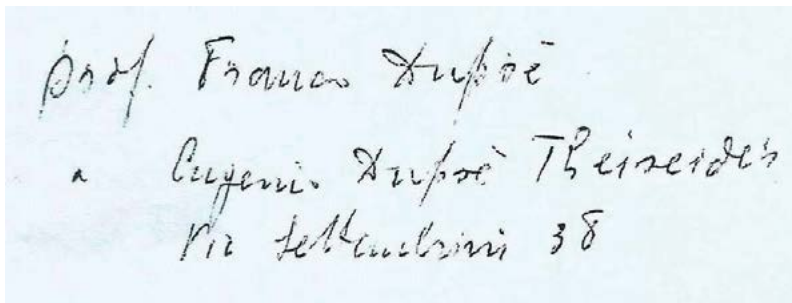 prof. Franco Duprè
a Eugenio Duprè Theseider
via Settembrini 38